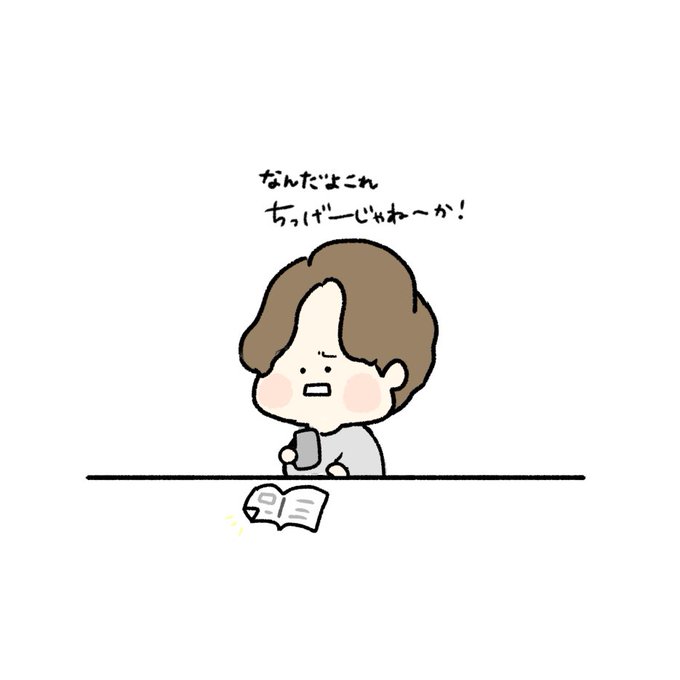 なんだよこれ
ちっげーじゃね〜か!